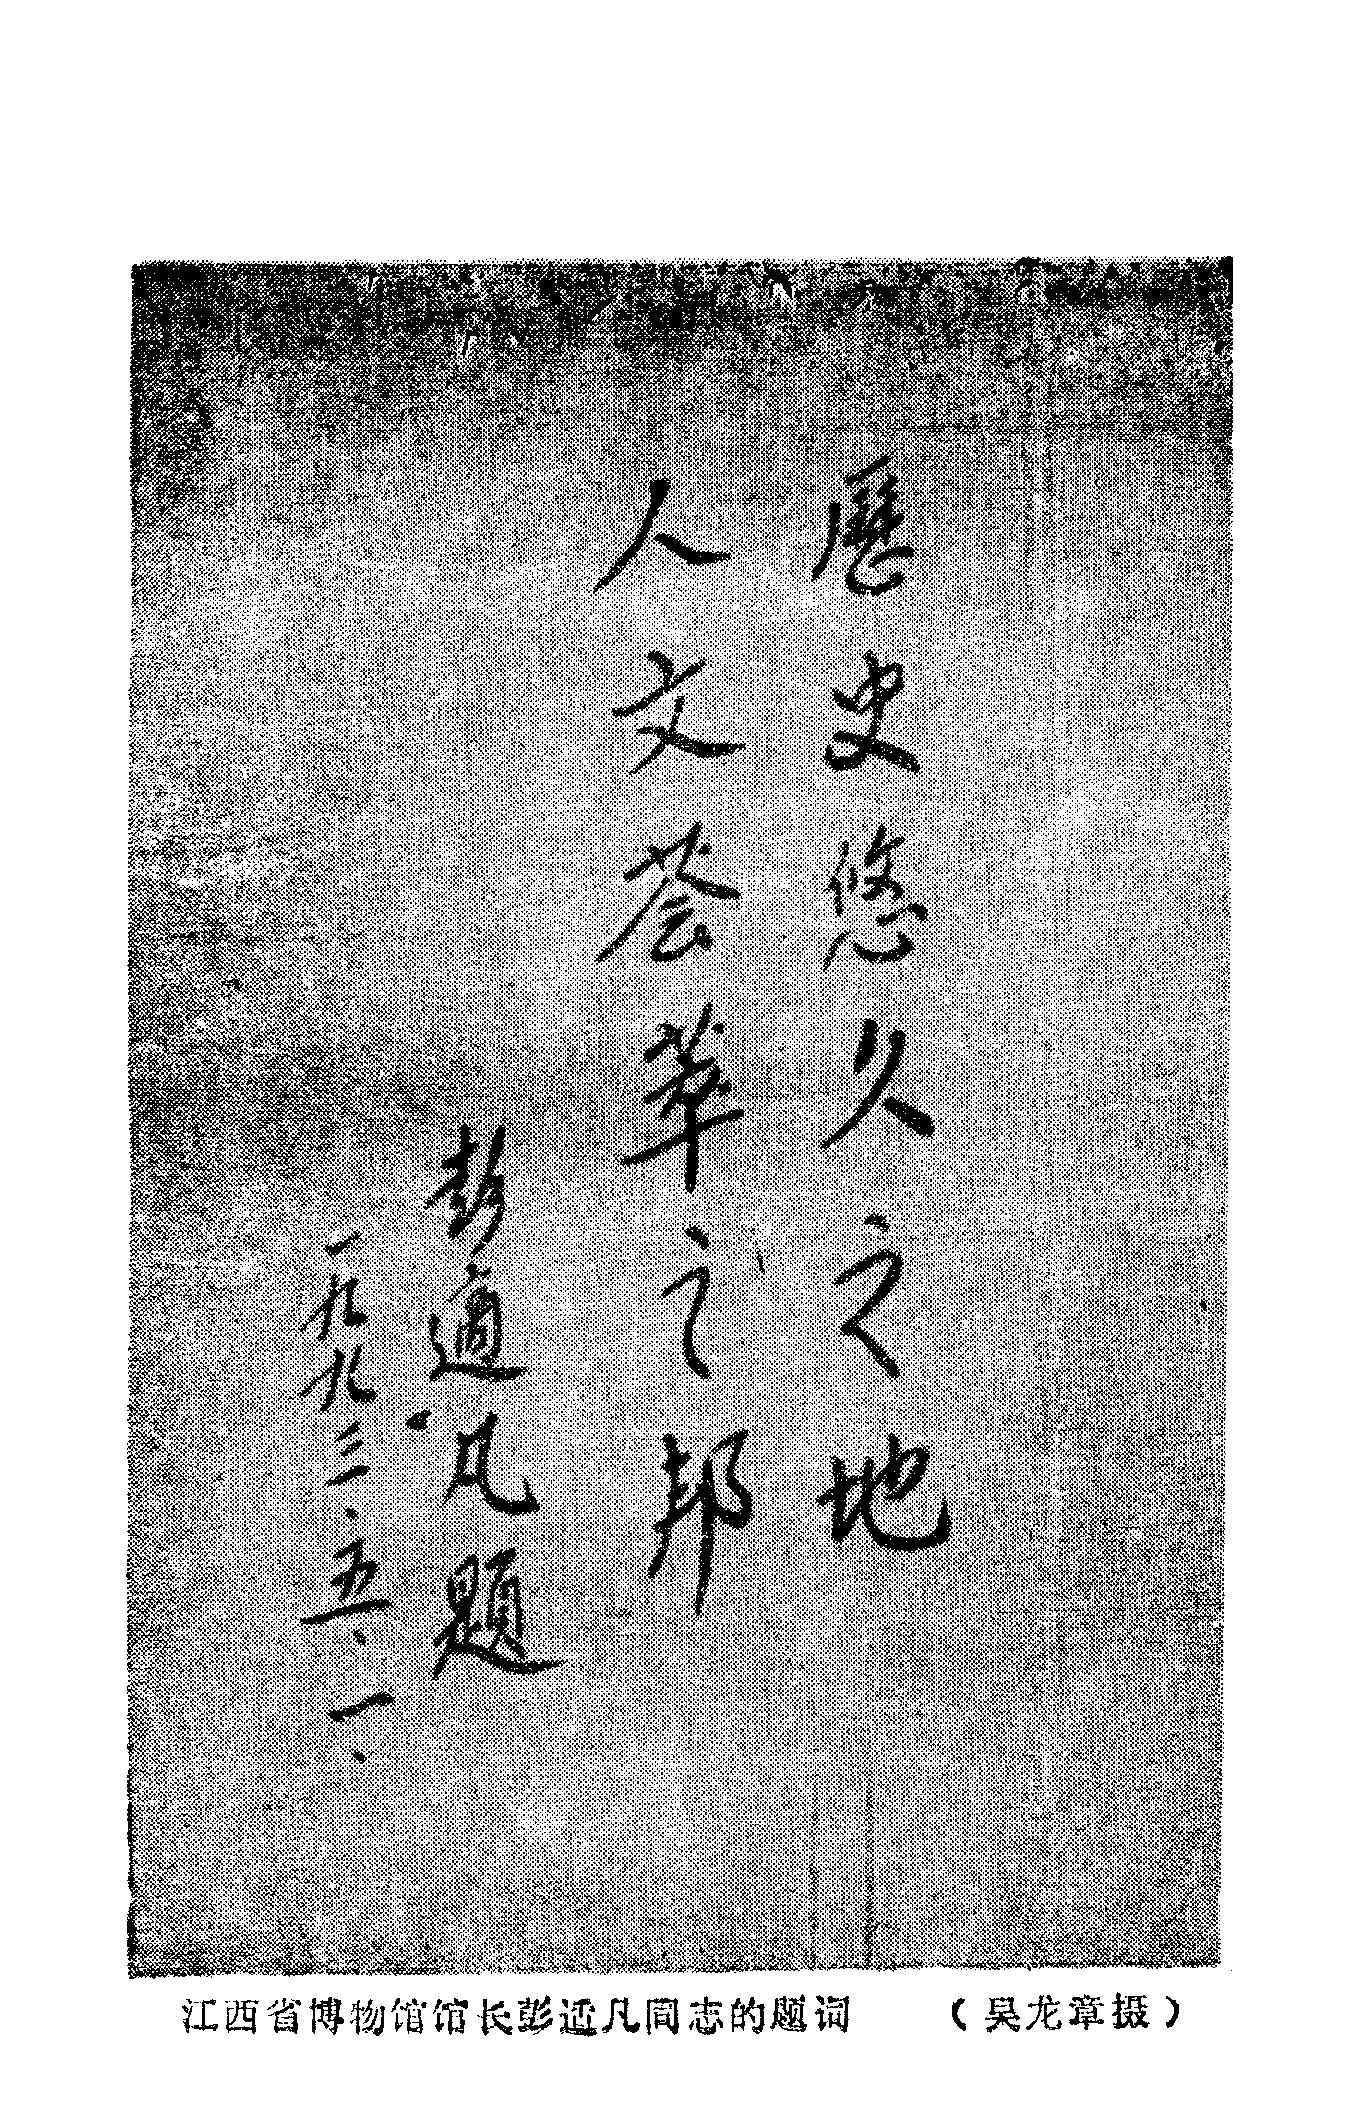 歷史悠久之地
人文荟萃之邦
彭適凡题
一九九三.五.一.
江西省博物馆馆长彭适凡同志的题词 （吴龙章摄）